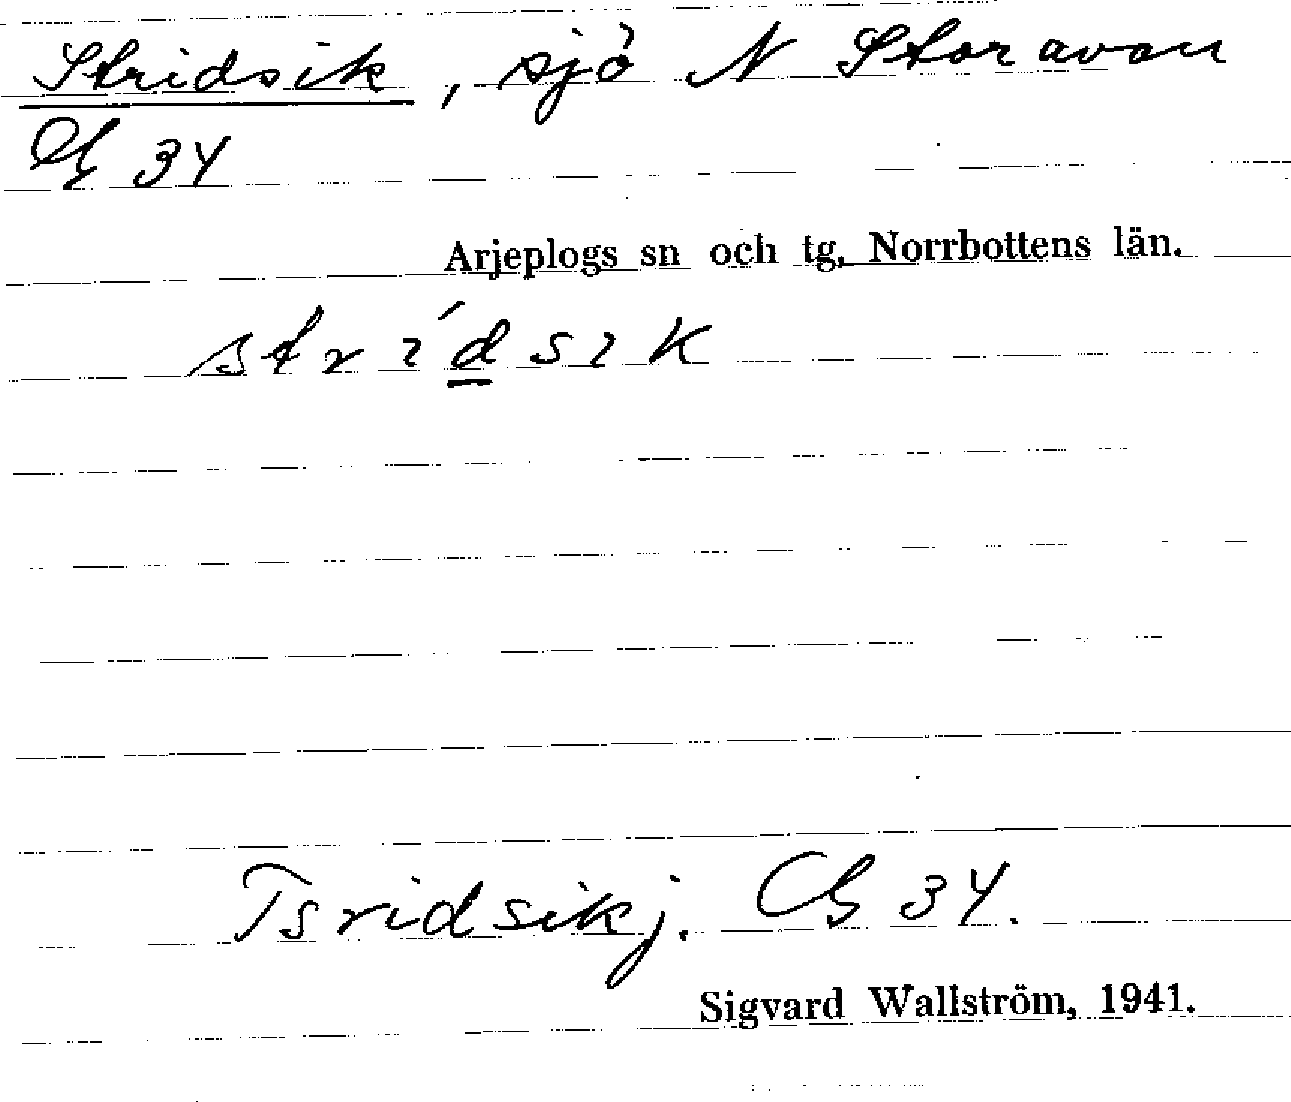 Stridsik, sjö N Storavan
Cb 34
Arjeplogs sn och tg. Norrbottens län.
strídsik
Tsridsikj. Cb 34.
Sigvard Wallström, 1941.